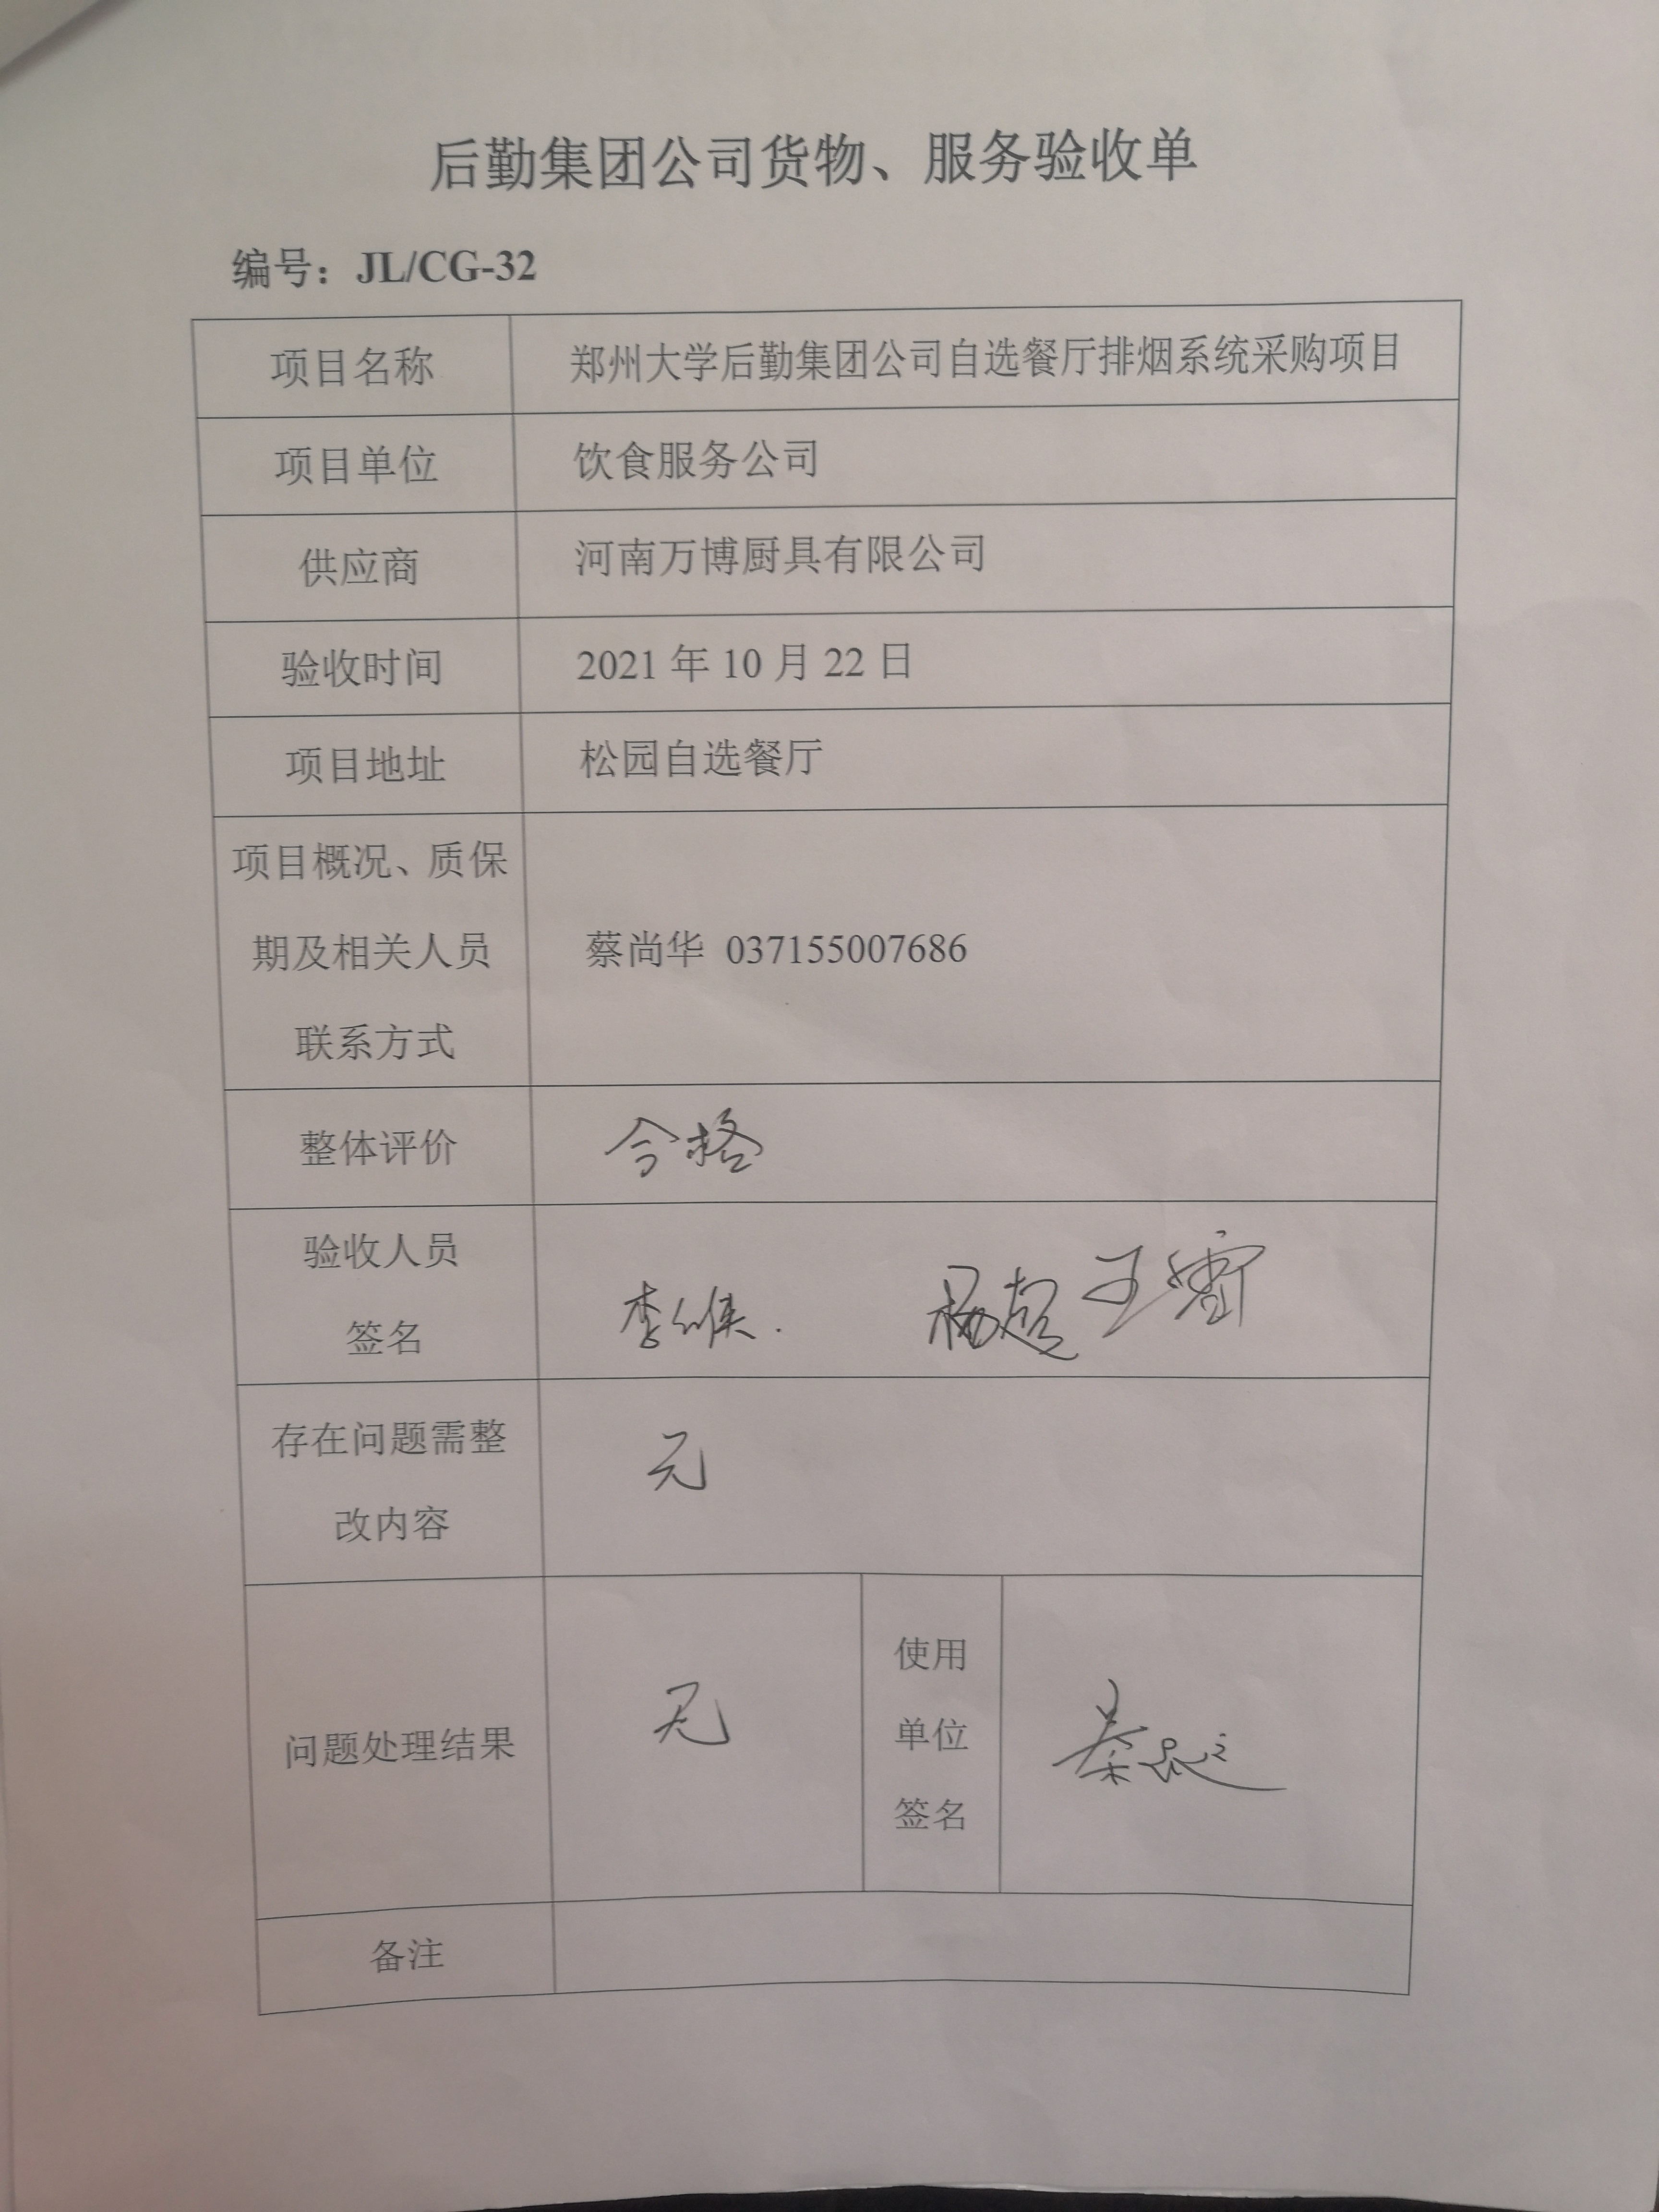 后勤集团公司货物、服务验收单
编号：JL/CG-32
项目名称 郑州大学后勤集团公司自选餐厅排烟系统采购项目
项目单位 饮食服务公司
供应商 河南万博厨具有限公司
验收时间 2021 年 10 月 22 日
项目地址 松园自选餐厅
项目概况、质保
期及相关人员
联系方式
蔡尚华 037155007686
整体评价 合格
验收人员
签名
杨超
存在问题需整
改内容
无
问题处理结果 无
使用
单位
签名
备注